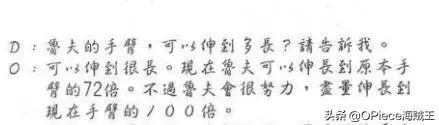 D：魯夫的手臂，可以伸到多長？請告訴我。
O：可以伸到很長。現在魯夫可以伸長到原本手
臂的72倍。不過魯夫會很努力，盡量伸長到
現在手臂的100倍。
头条 @OPiece海贼王